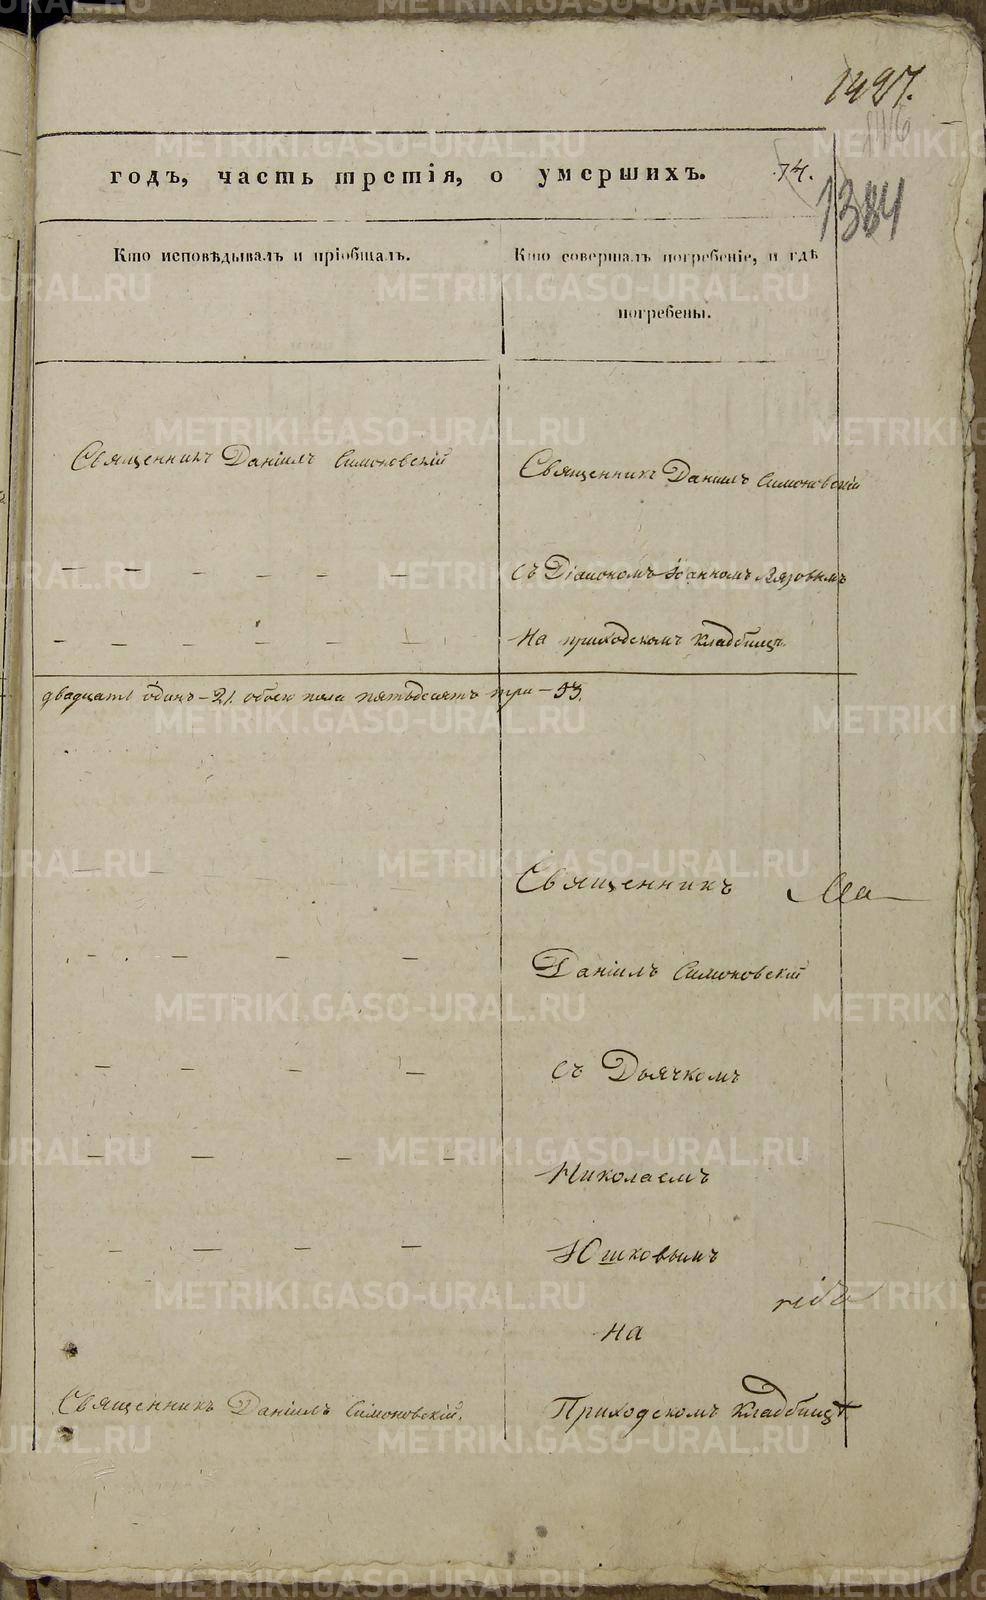 1427.
1116
годъ, часть третія, о умершихъ. 74.
1384
Кто исповѣдывалъ и пріобщалъ.
Кто совершалъ погребеніе, и гдѣ
погребены.
Священникъ Даніилъ Симоновскій
Священникъ Даніилъ Симоновскій
съ Діакономъ Іоанномъ
На приходскомъ кладбищѣ
двадцать одинъ – 21. обоего пола пятьдесятъ три – 53.
Священникъ
Даніилъ Симоновскій
съ Дьячкомъ
Николаемъ
Юшковымъ
на
Священникъ Даніилъ Симоновскій.
Приходскомъ кладбищѣ
METRIKI.GASO-URAL.RU